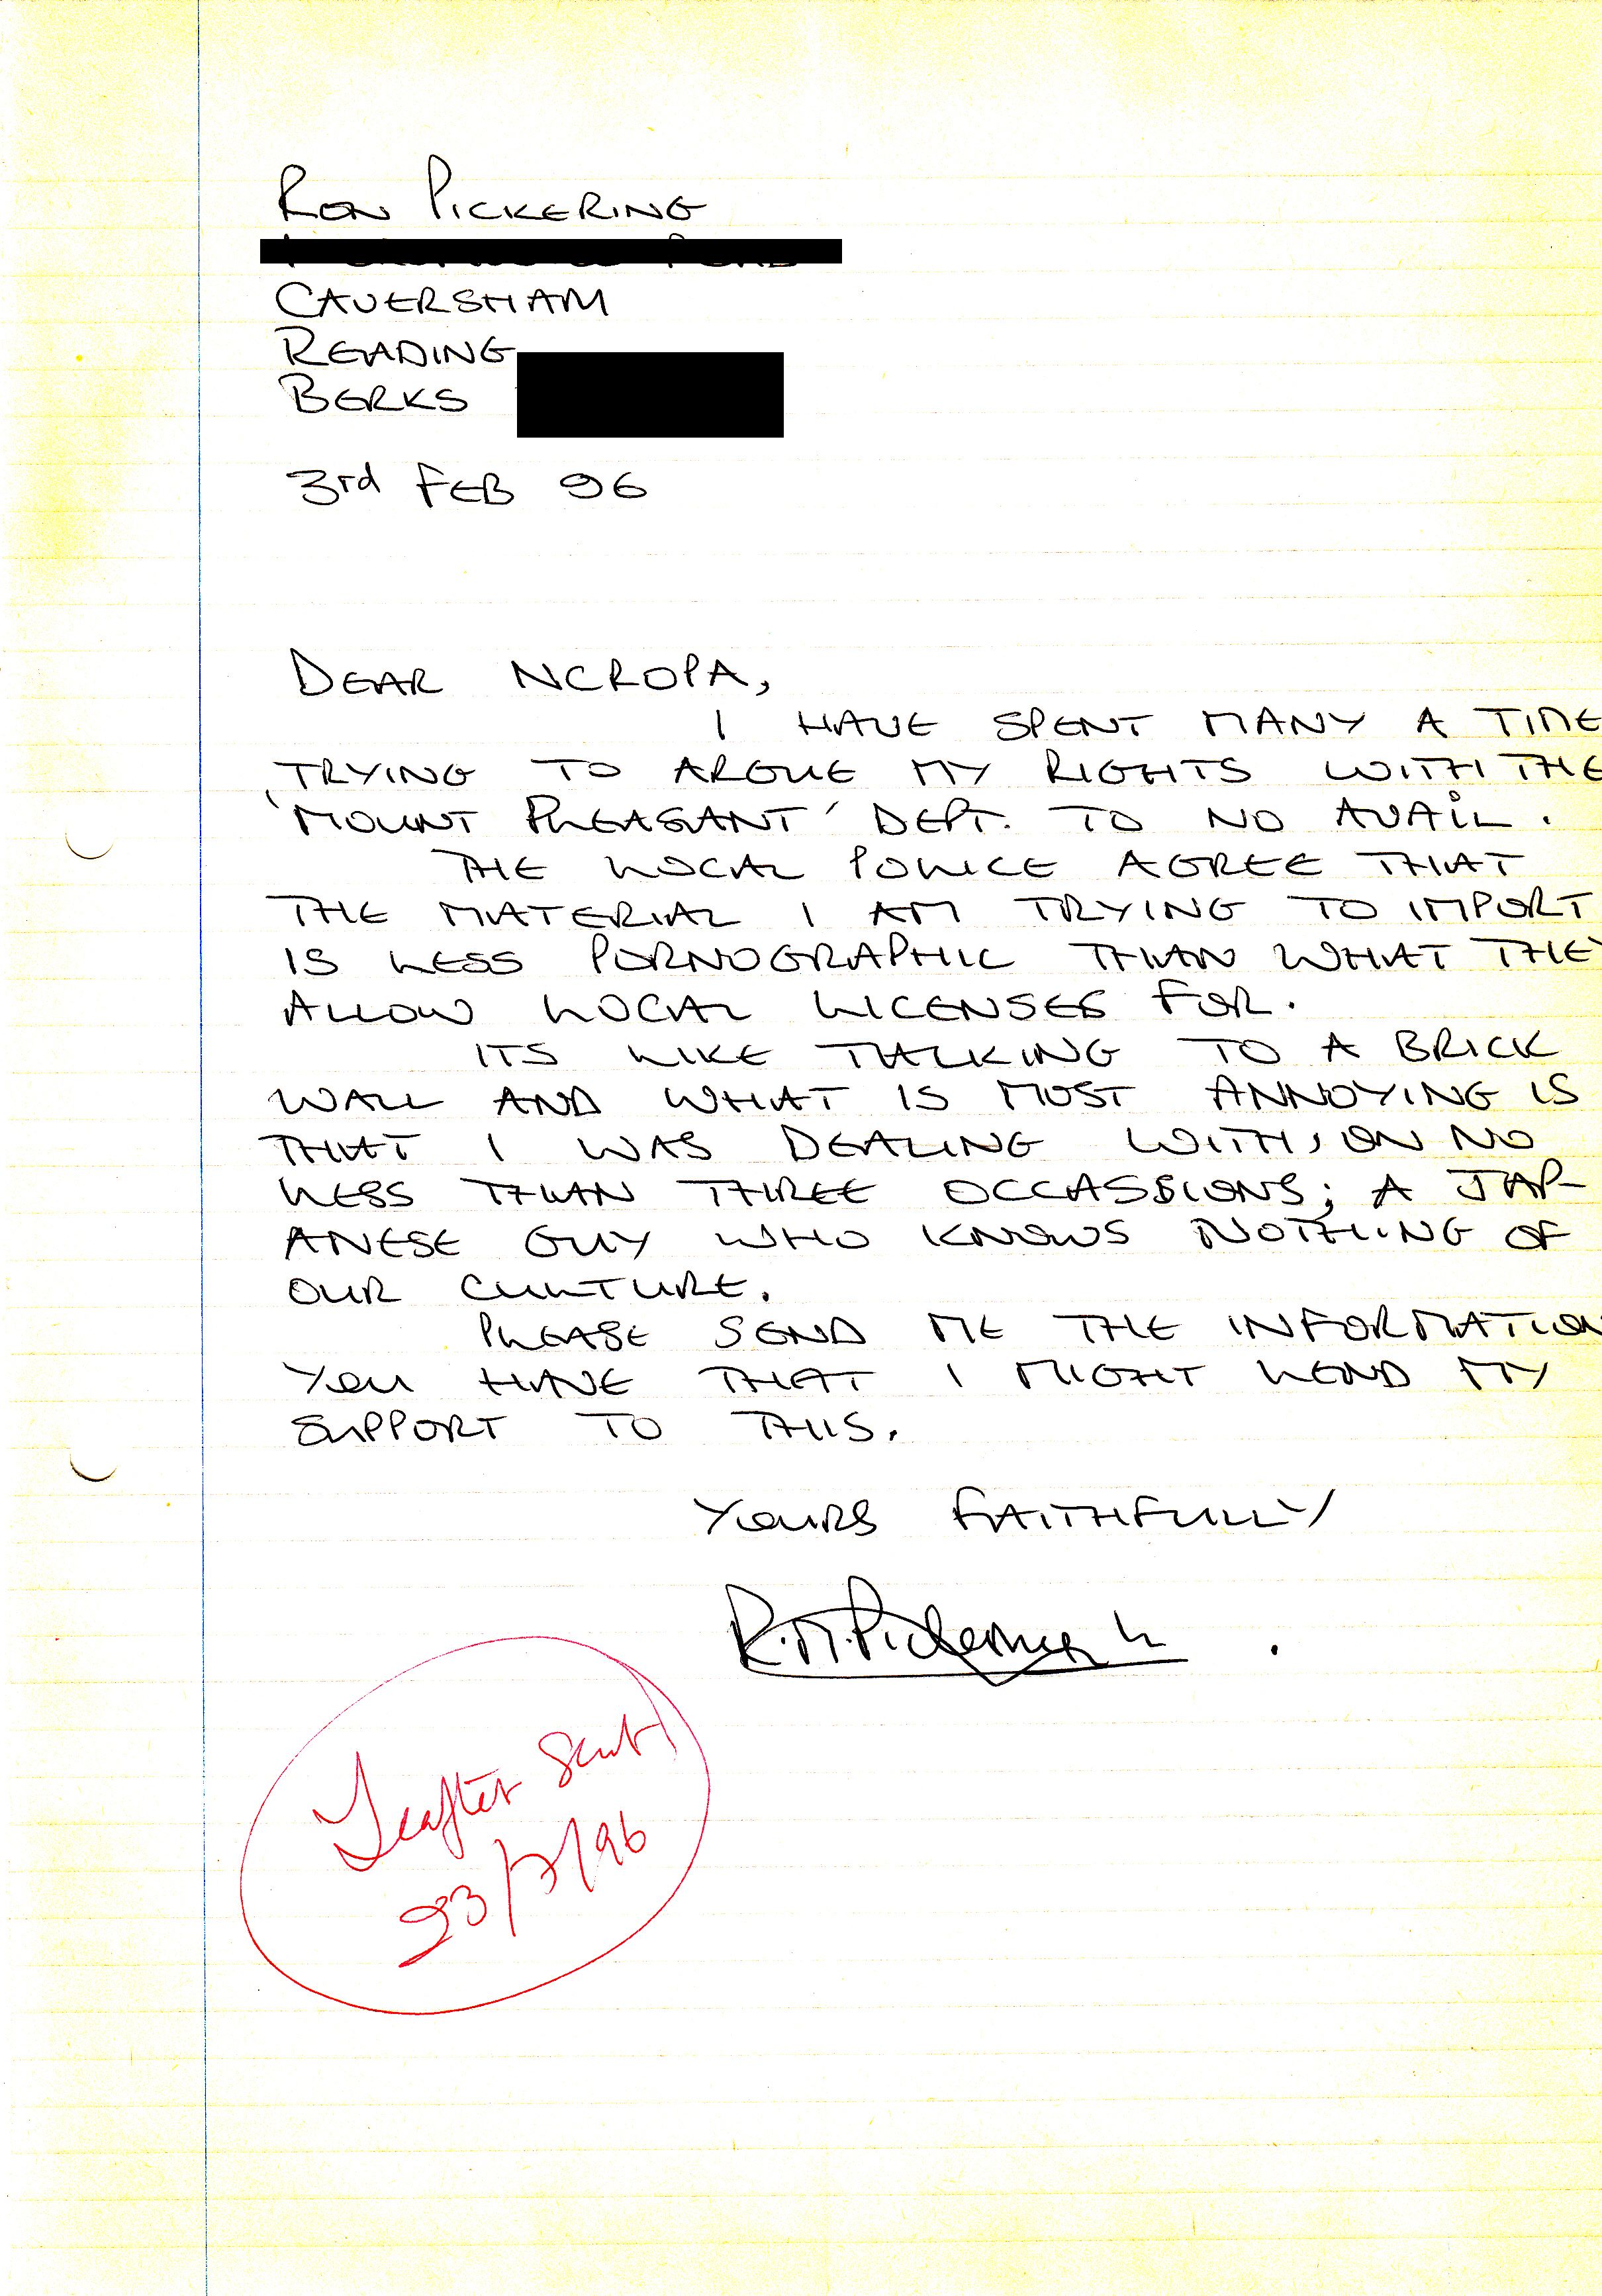 RON PICKERING
CAVERSHAM
READING
BERKS
3rd FEB 96
DEAR NCROPA,
I HAVE SPENT MANY A TIME
TRYING TO ARGUE MY RIGHTS WITH THE
'MOUNT PLEASANT' DEPT. TO NO AVAIL.
THE LOCAL POLICE AGREE THAT
THE MATERIAL I AM TRYING TO IMPORT
IS LESS PORNOGRAPHIC THAN WHAT THEY
ALLOW LOCAL LICENSES FOR.
ITS LIKE TALKING TO A BRICK
WALL AND WHAT IS MOST ANNOYING IS
THAT I WAS DEALING WITH, ON NO
LESS THAN THREE OCCASSIONS; A JAP-
ANESE GUY WHO KNOWS NOTHING OF
OUR CULTURE.
PLEASE SEND ME THE INFORMATION
YOU HAVE THAT I MIGHT LEND MY
SUPPORT TO THIS.
YOURS FAITHFULLY
R.M.Pickering
Leaflet Sent
23/2/96